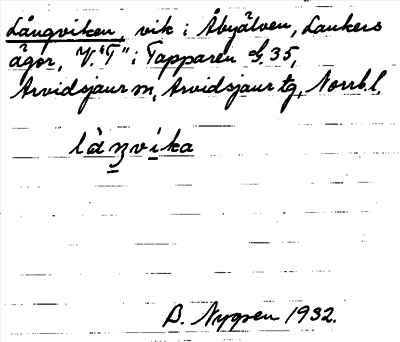 Långviken, vik i Åbyälven, Laukers
ägor, V. "T" i Tapparen L. 35,
Arvidsjaur sn, Arvidsjaur tg, Norrb. l.
làŋvika
B. Nygren 1932.